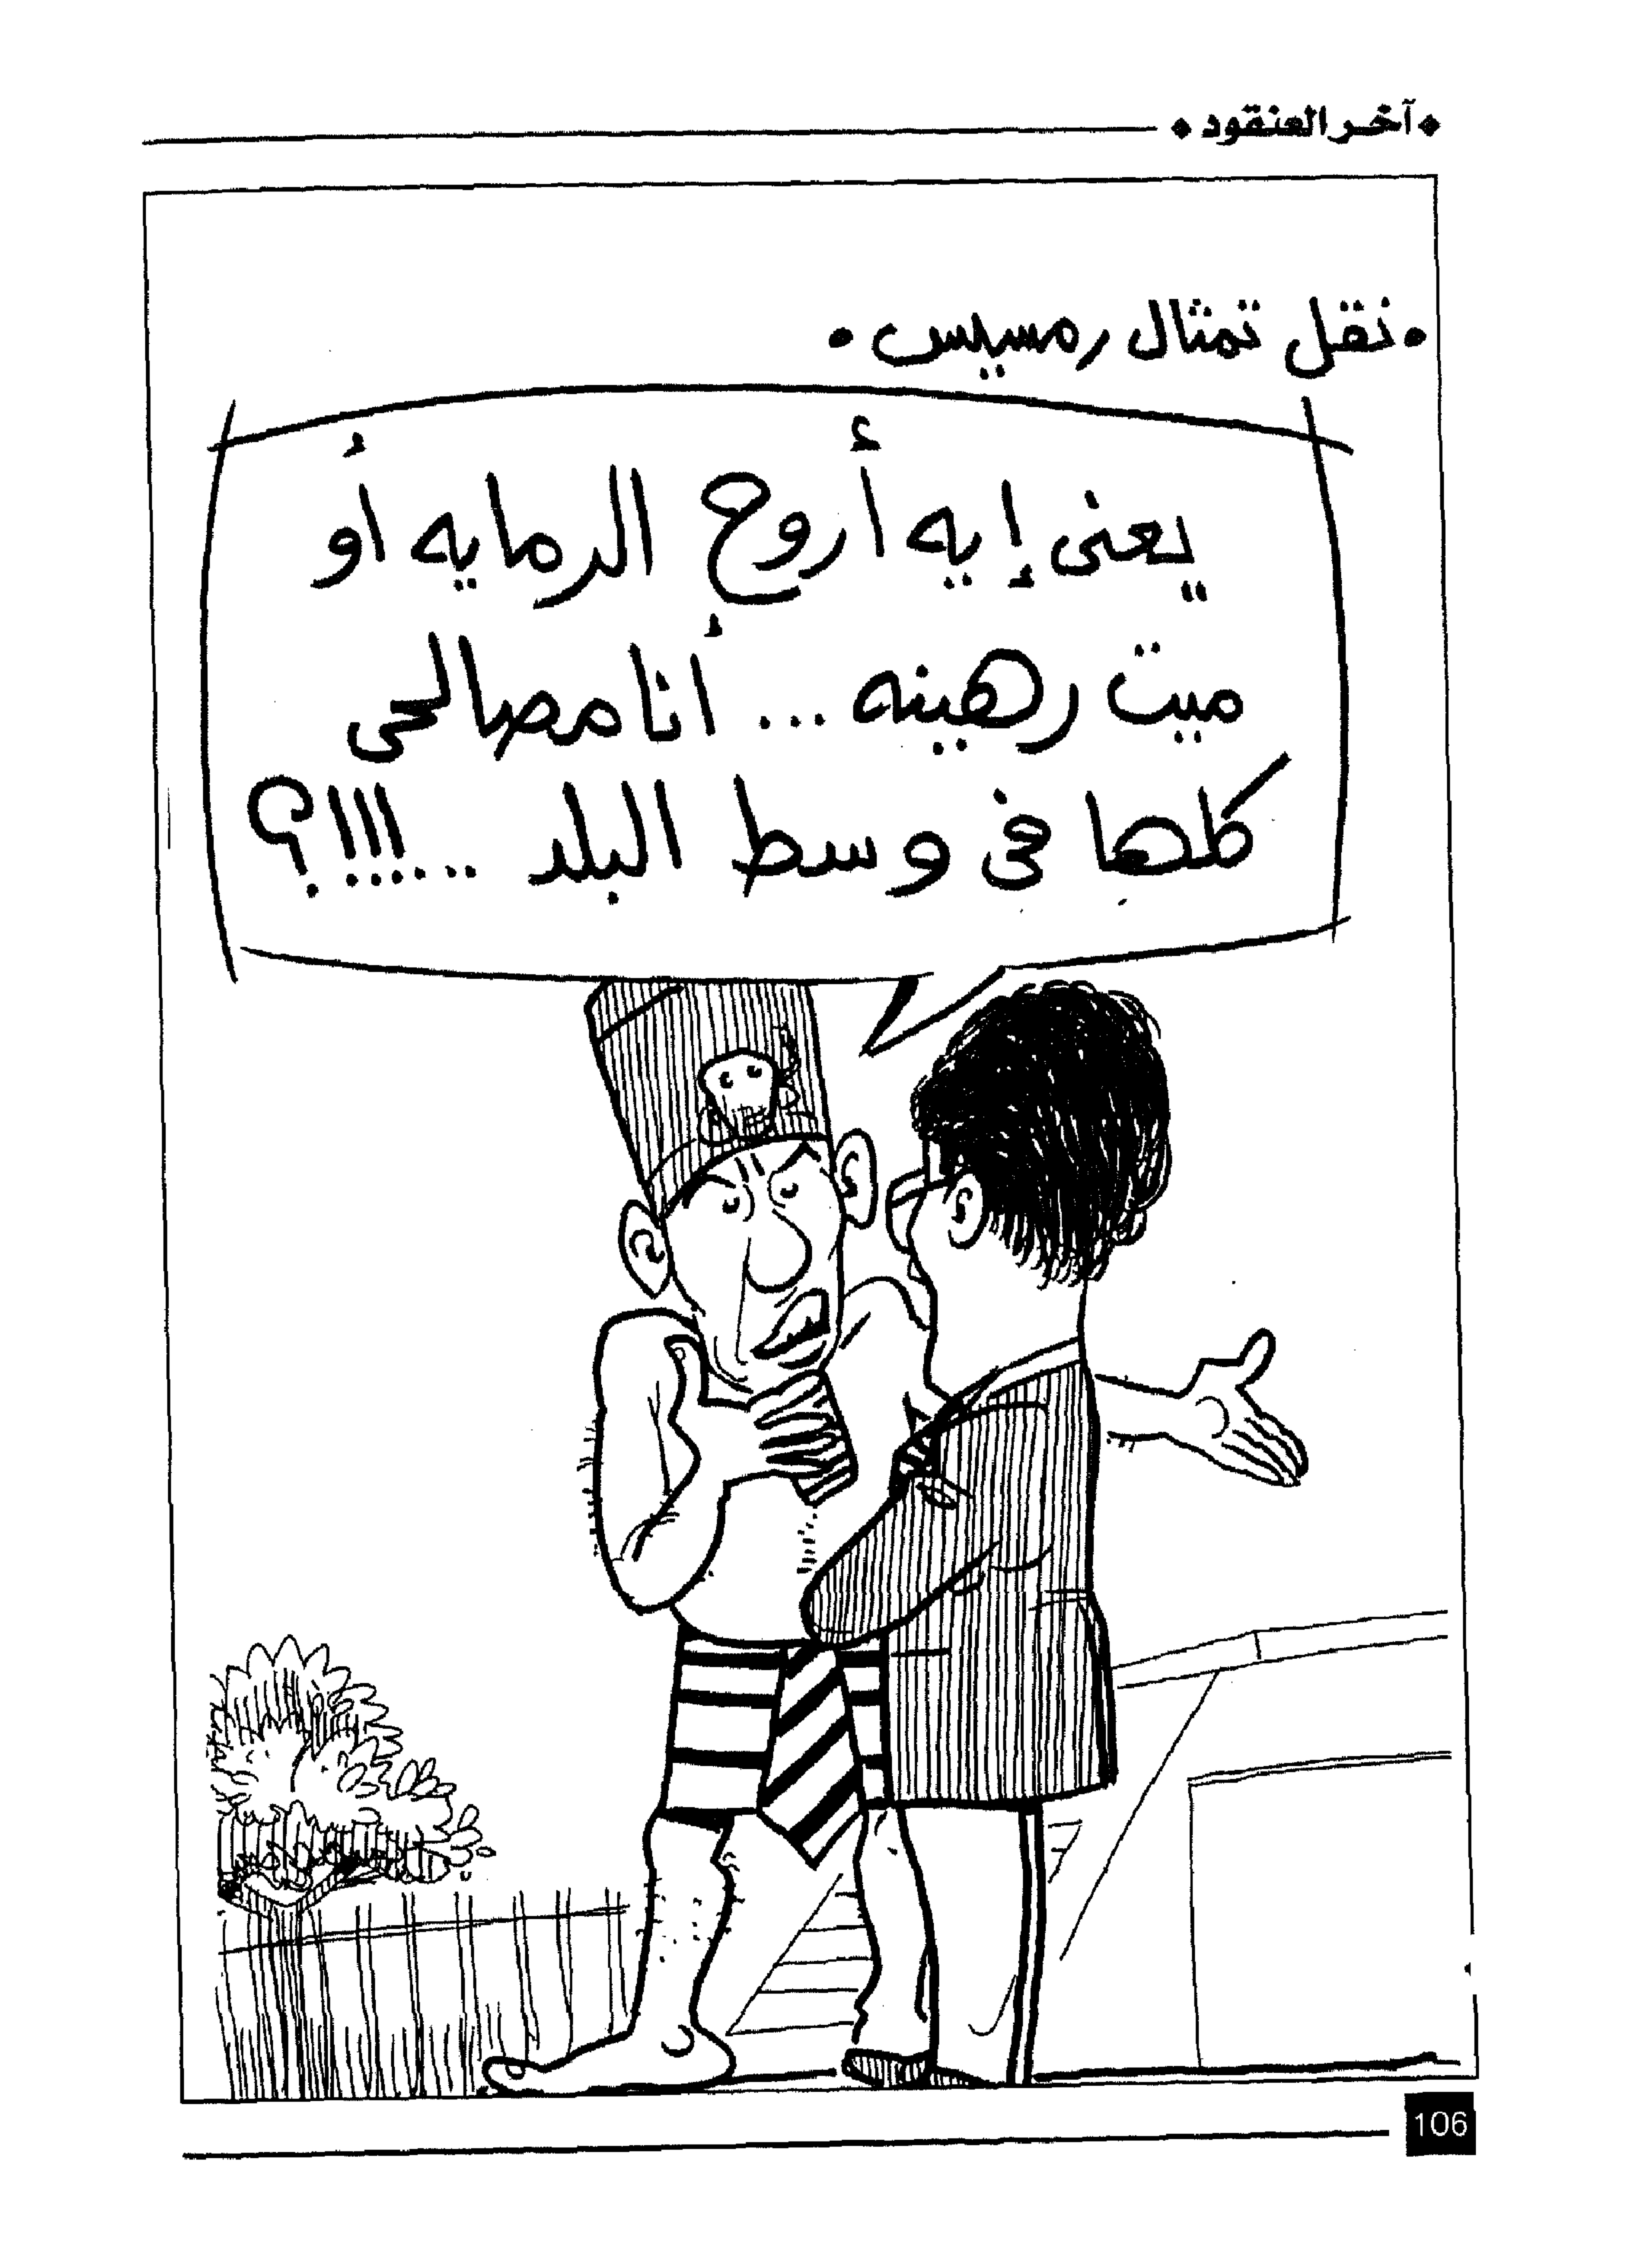 آخر العنقود
• نقل تمثال رمسيس •
يعنى إيه أروح الرمايه أو
ميت رهينه ... أنا مصالحى
كلها فى وسط البلد ...!!!؟
106